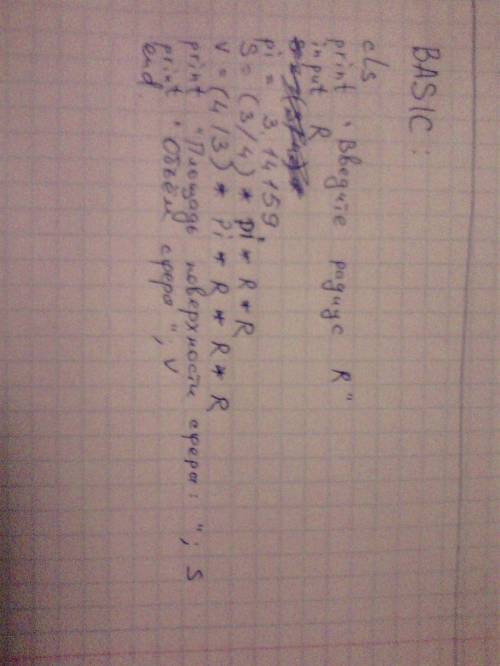 BASIC:
cls
print "Введите радиус R"
input R
pi = 3.14159
S = (3/4) * pi * R * R
V = (4/3) * pi * R * R * R
print "Площадь поверхности сфера: "; S
print "Объём сфера"; V
end